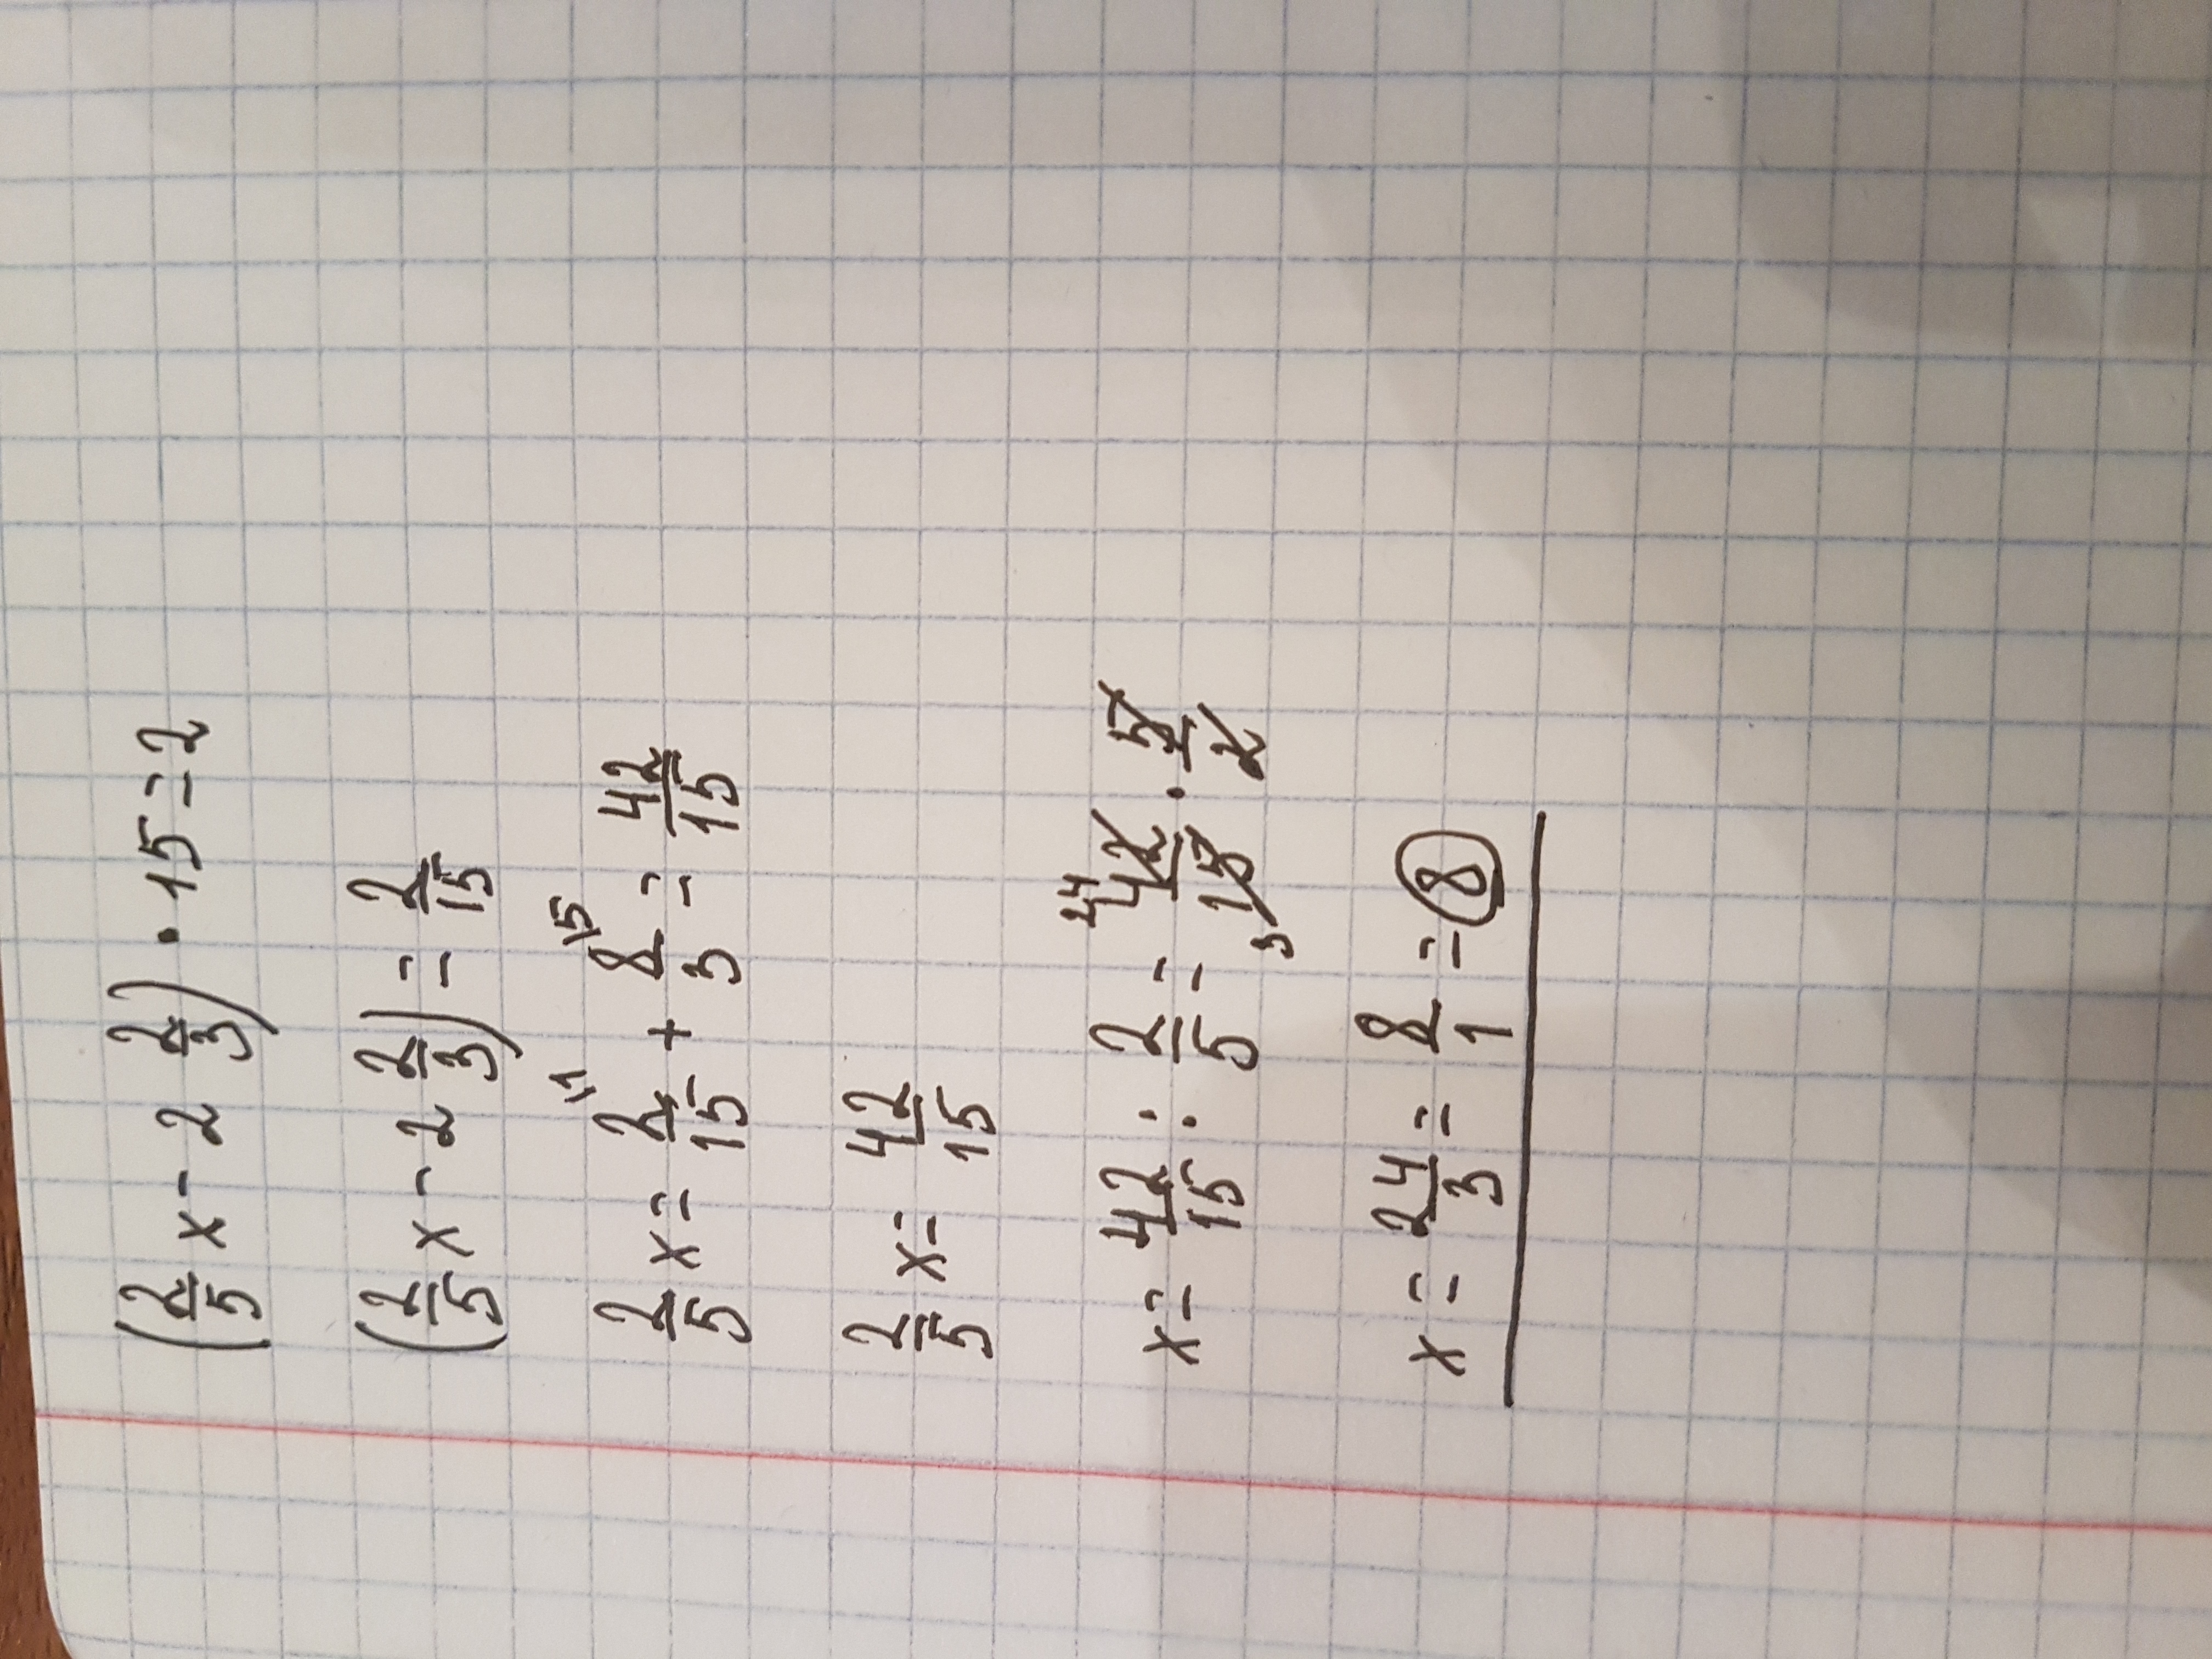 (2/5 x - 2 2/3) · 15 = 2
(2/5 x - 2 2/3) = 2/15
2/5 x = 2/15 + 8/3 = 42/15
2/5 x = 42/15
x = 42/15 : 2/5 = 42/15 · 5/2
x = 24/3 = 8/1 = 8